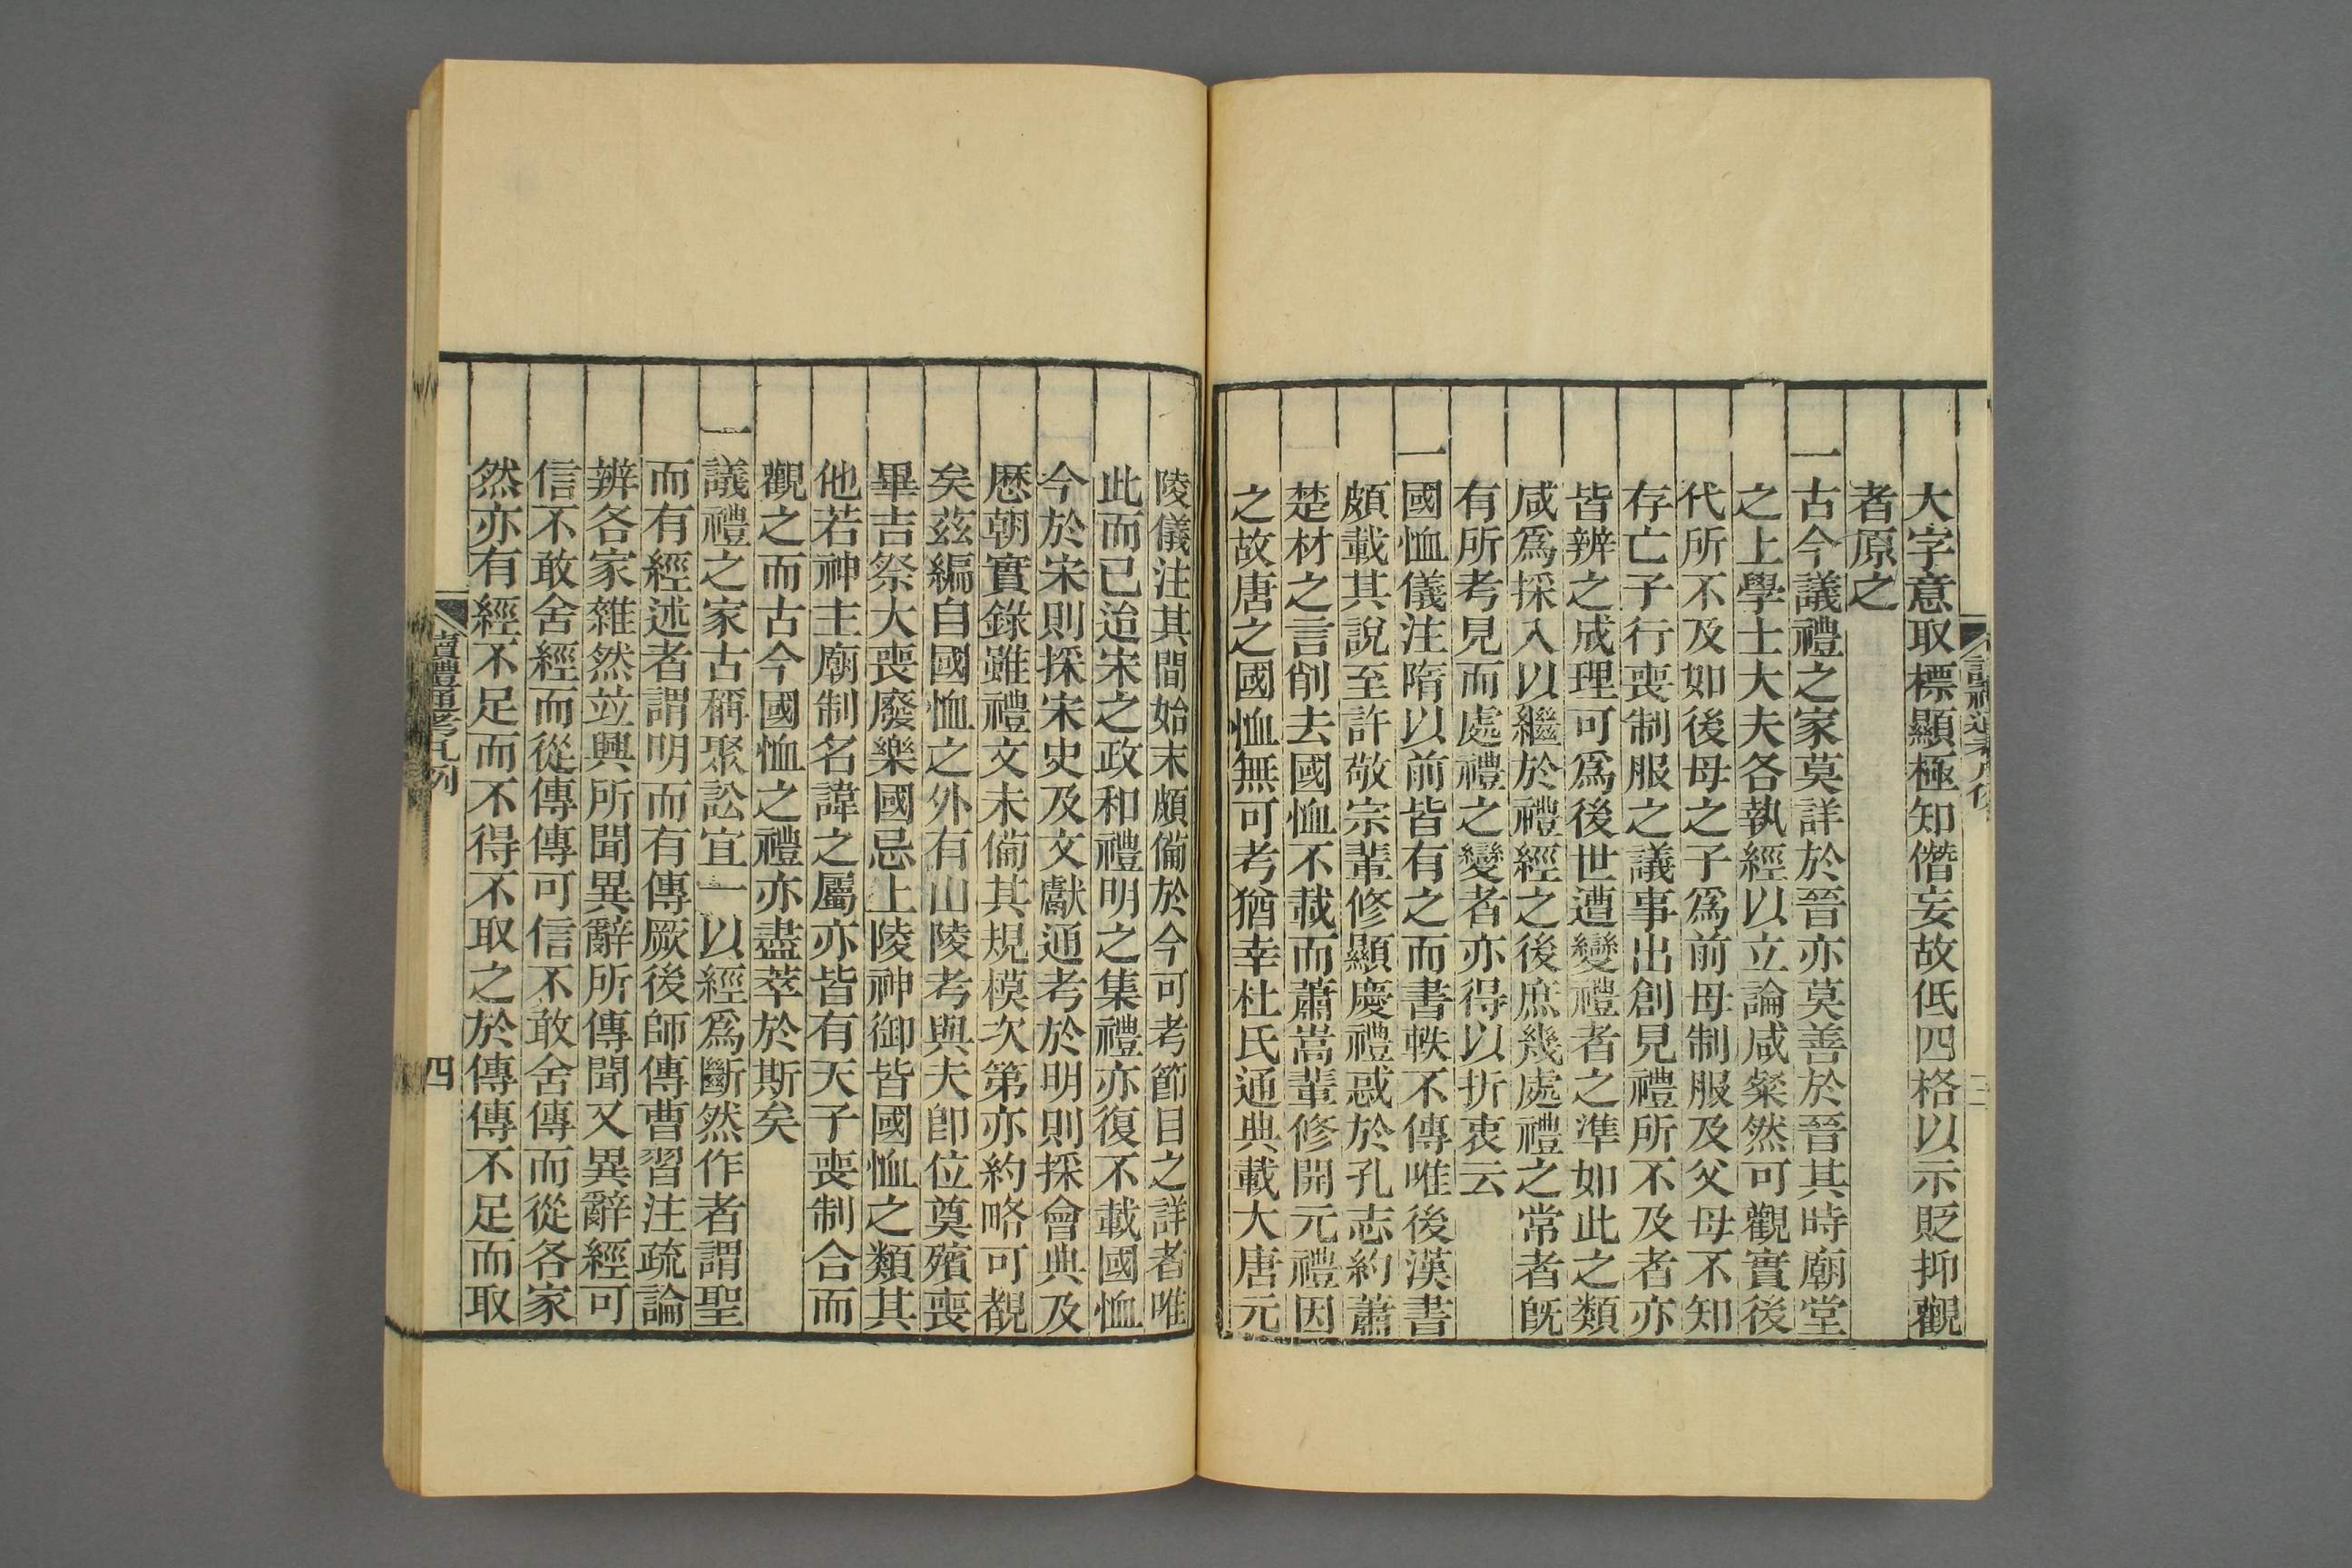 大字意取標顯極知僭妄故低四格以示貶抑觀
者原之
一古今議禮之家莫詳於晉亦莫善於晉其時廟堂
之上學士大夫各執經以立論咸粲然可觀實後
代所不及如後母之子爲前母制服及父母不知
存亡子行喪制服之議事出創見禮所不及者亦
皆辨之成理可爲後世遭變禮者之準如此之類
咸爲採入以繼於禮經之後庶幾處禮之常者旣
有所考見而處禮之變者亦得以折衷云
一國恤儀注隋以前皆有之而書軼不傳唯後漢書
頗載其說至許敬宗輩修顯慶禮惑於孔志約蕭
楚材之言削去國恤不載而蕭嵩輩修開元禮因
之故唐之國恤無可考猶幸杜氏通典載大唐元
陵儀注其間始末頗備於今可考節目之詳者唯
此而已迨宋之政和禮明之集禮亦復不載國恤
今於宋則採宋史及文獻通考於明則採會典及
歷朝實錄雖禮文未備其規模次第亦約略可覩
矣茲編自國恤之外有山陵考與夫卽位奠殯喪
畢吉祭大喪廢樂國忌上陵神御皆國恤之類其
他若神主廟制名諱之屬亦皆有天子喪制合而
觀之而古今國恤之禮亦盡萃於斯矣
一議禮之家古稱聚訟宜一以經爲斷然作者謂聖
而有經述者謂明而有傳厥後師傳曹習注疏論
辨各家雜然竝興所聞異辭所傳聞又異辭經可
信不敢舍經而從傳傳可信不敢舍傳而從各家
然亦有經不足而不得不取之於傳傳不足而取
讀禮通考凡例
四